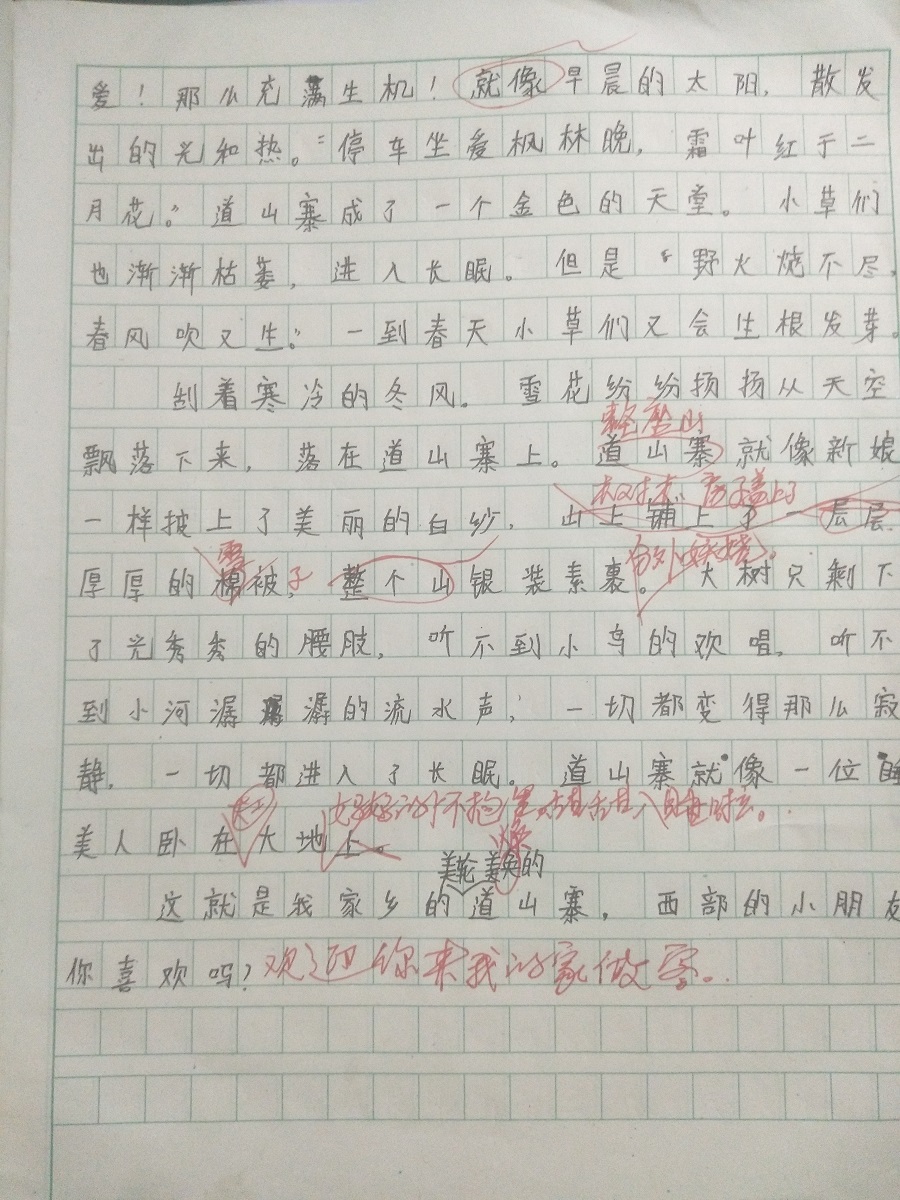 爱！那么充满生机！就像早晨的太阳，散发
出的光和热。“停车坐爱枫林晚，霜叶红于二
月花。”道山寨成了一个金色的天堂。小草们
也渐渐枯萎，进入长眠。但是“野火烧不尽，
春风吹又生。”一到春天小草们又会生根发芽。
刮着寒冷的冬风。雪花纷纷扬扬从天空
整座山
飘落下来，落在道山寨上。道山寨就像新娘
树木、房子盖上了
一样披上了美丽的白纱，山上铺上了一层层
雪
子
分外妖娆。
厚厚的棉被，整个山银装素裹。大树只剩下
了光秃秃的腰肢，听不到小鸟的欢唱，听不
到小河潺潺的流水声，一切都变得那么寂
静，一切都进入了长眠。道山寨就像一位睡
美人卧在大地上。
焕
美轮美奂的
这就是我家乡的道山寨，西部的小朋友
你喜欢吗？欢迎你来我的家做客。